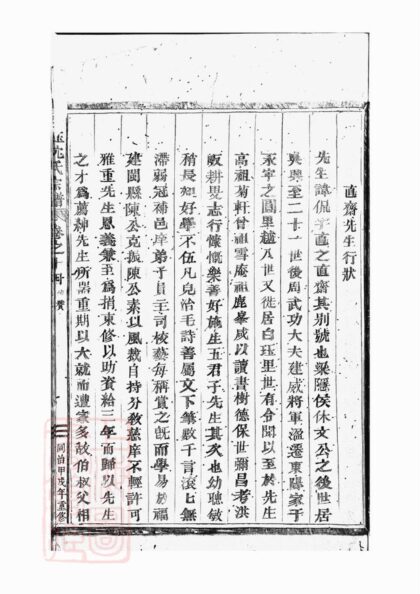 直齋先生行狀
先生諱侃字直之直齋其别號也梁隱侯休文公之後世居
吳興至二十一世後周武功大夫建威將軍溫遷東陽家于
永寧之圓里越八世又徙居白珏里世有分聞以至於先生
高祖菊軒曾祖雪庵祖鹿皋咸以讀書樹德保世彌昌考洪
畈耕叟志行慷慨樂善好施生五君子先生其次也幼聰敏
稍長短好學不伍凡兒治毛詩善屬文下筆數千言滾匕無
滯弱冠補邑庠弟子員二三司校藝每稱賞之旣而學易於福
建閩縣陳公克振陳公素以風敎自持分敎慈庠不輕許可
雅重先生恩義兼至爲捐束修以助資給三年而歸以先生
之才爲薦紳先生所器重期以大就而遭家多故伯叔父相
沈氏宗譜
卷之十四
贊
同治甲戌年重修